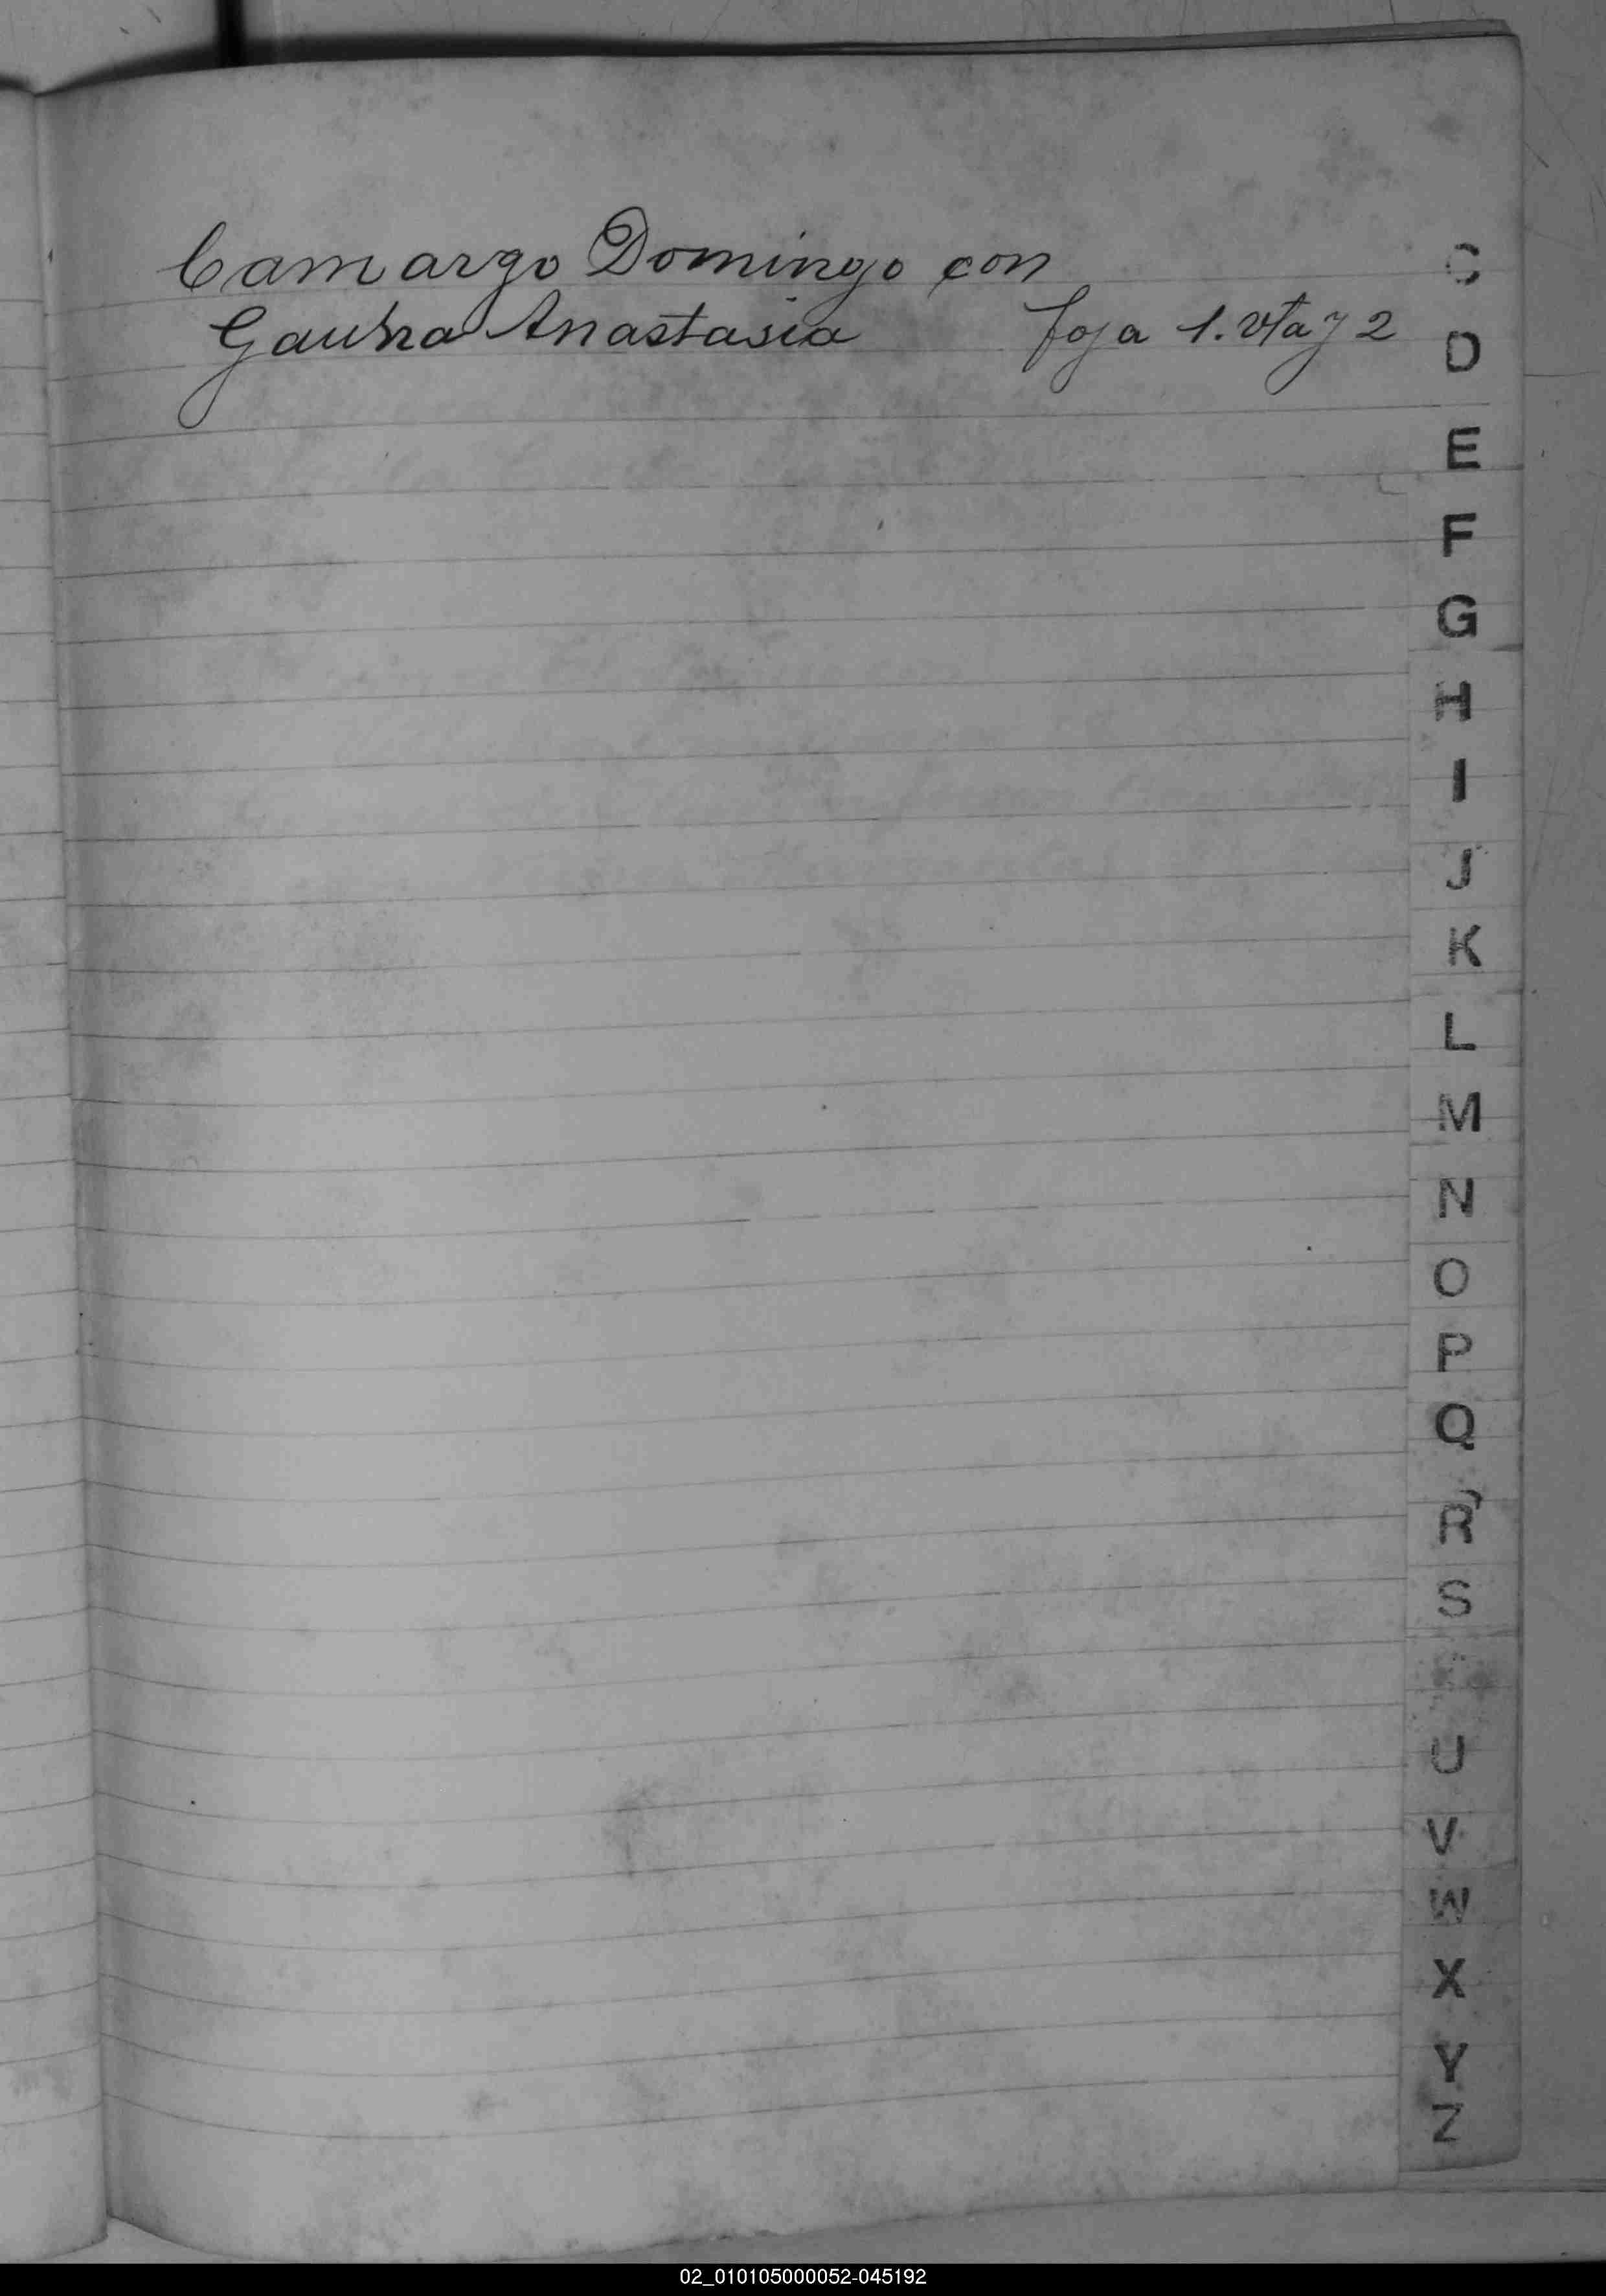 Camargo Domingo con
Gauna Anastasia foja 1. vta y 2
C
D
E
F
G
H
I
J
K
L
M
N
O
P
Q
R
S
U
V
W
X
Y
Z
02_010105000052-045192